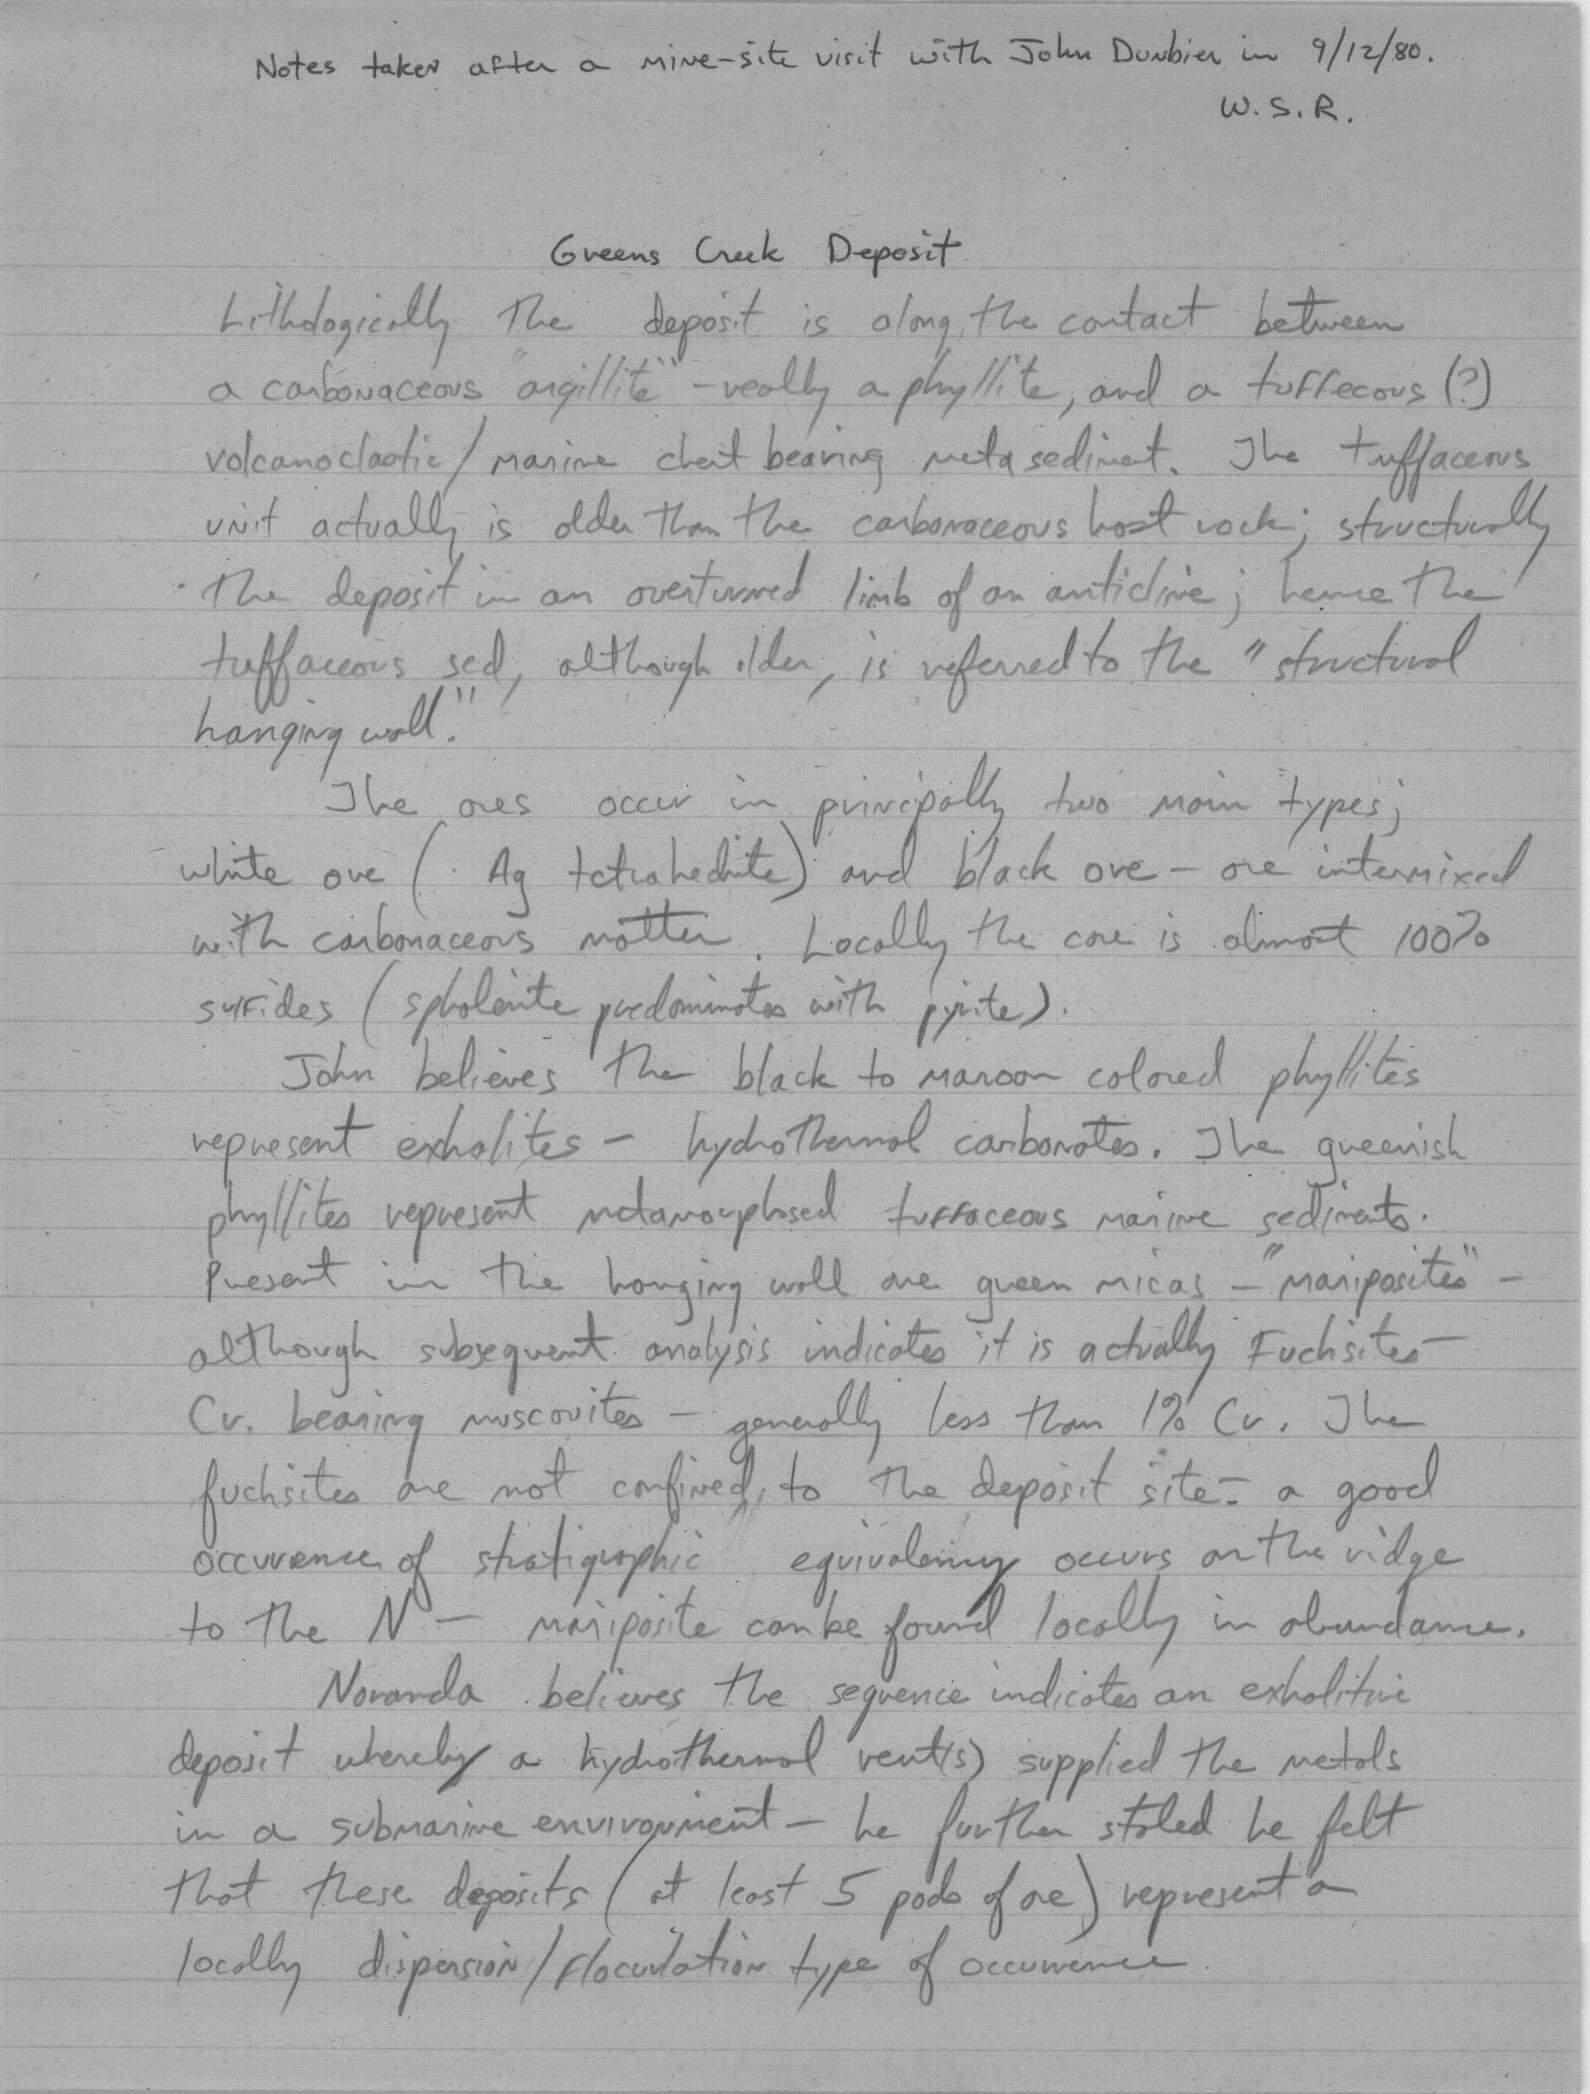 Notes taken after a mine-site visit with John Dunbier in 9/12/80.
W.S.R.
Greens Creek Deposit
Lithologically the deposit is along the contact between
a carbonaceous "argillite" - really a phyllite, and a tuffecous (?)
volcanoclastic/marine chert bearing metasediment. The tuffaceous
unit actually is older than the carbonaceous host rock; structurally
the deposit in an overturned limb of an anticline; hence the
tuffaceous sed, although older, is referred to the "structural
hanging wall."
The ores occur in principally two main types;
white ore (Ag tetrahedrite) and black ore - ore intermixed
with carbonaceous matter. Locally the core is almost 100%
sulfides (sphalerite predominates with pyrite).
John believes the black to maroon colored phyllites
represent exhalites - hydrothermal carbonates. The greenish
phyllites represent metamorphosed tuffaceous marine sediments.
Present in the hanging wall are green micas - "mariposites" -
although subsequent analysis indicates it is actually Fuchsites -
Cr. bearing muscovites - generally less than 1% Cr. The
fuchsites are not confined to the deposit site - a good
occurence of stratigraphic equivalency occurs on the ridge
to the N - mariposite can be found locally in abundance.
Noranda believes the sequence indicates an exhalitive
deposit whereby a hydrothermal vent(s) supplied the metals
in a submarine environment - he further stated he felt
that these deposits (at least 5 pods of ore) represent a
locally dispersion/floculation type of occurrence